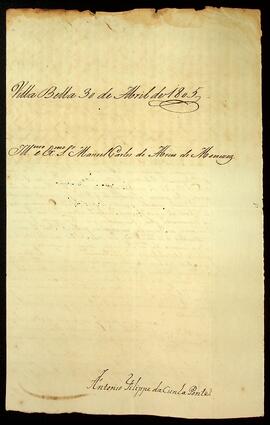 Villa Bella 30 de Abril de 1805,,
Ill.mo e Ex.mo S.r Manoel Carlos de Abreu de Menezes
Antonio Filippe da Cunha Ponte